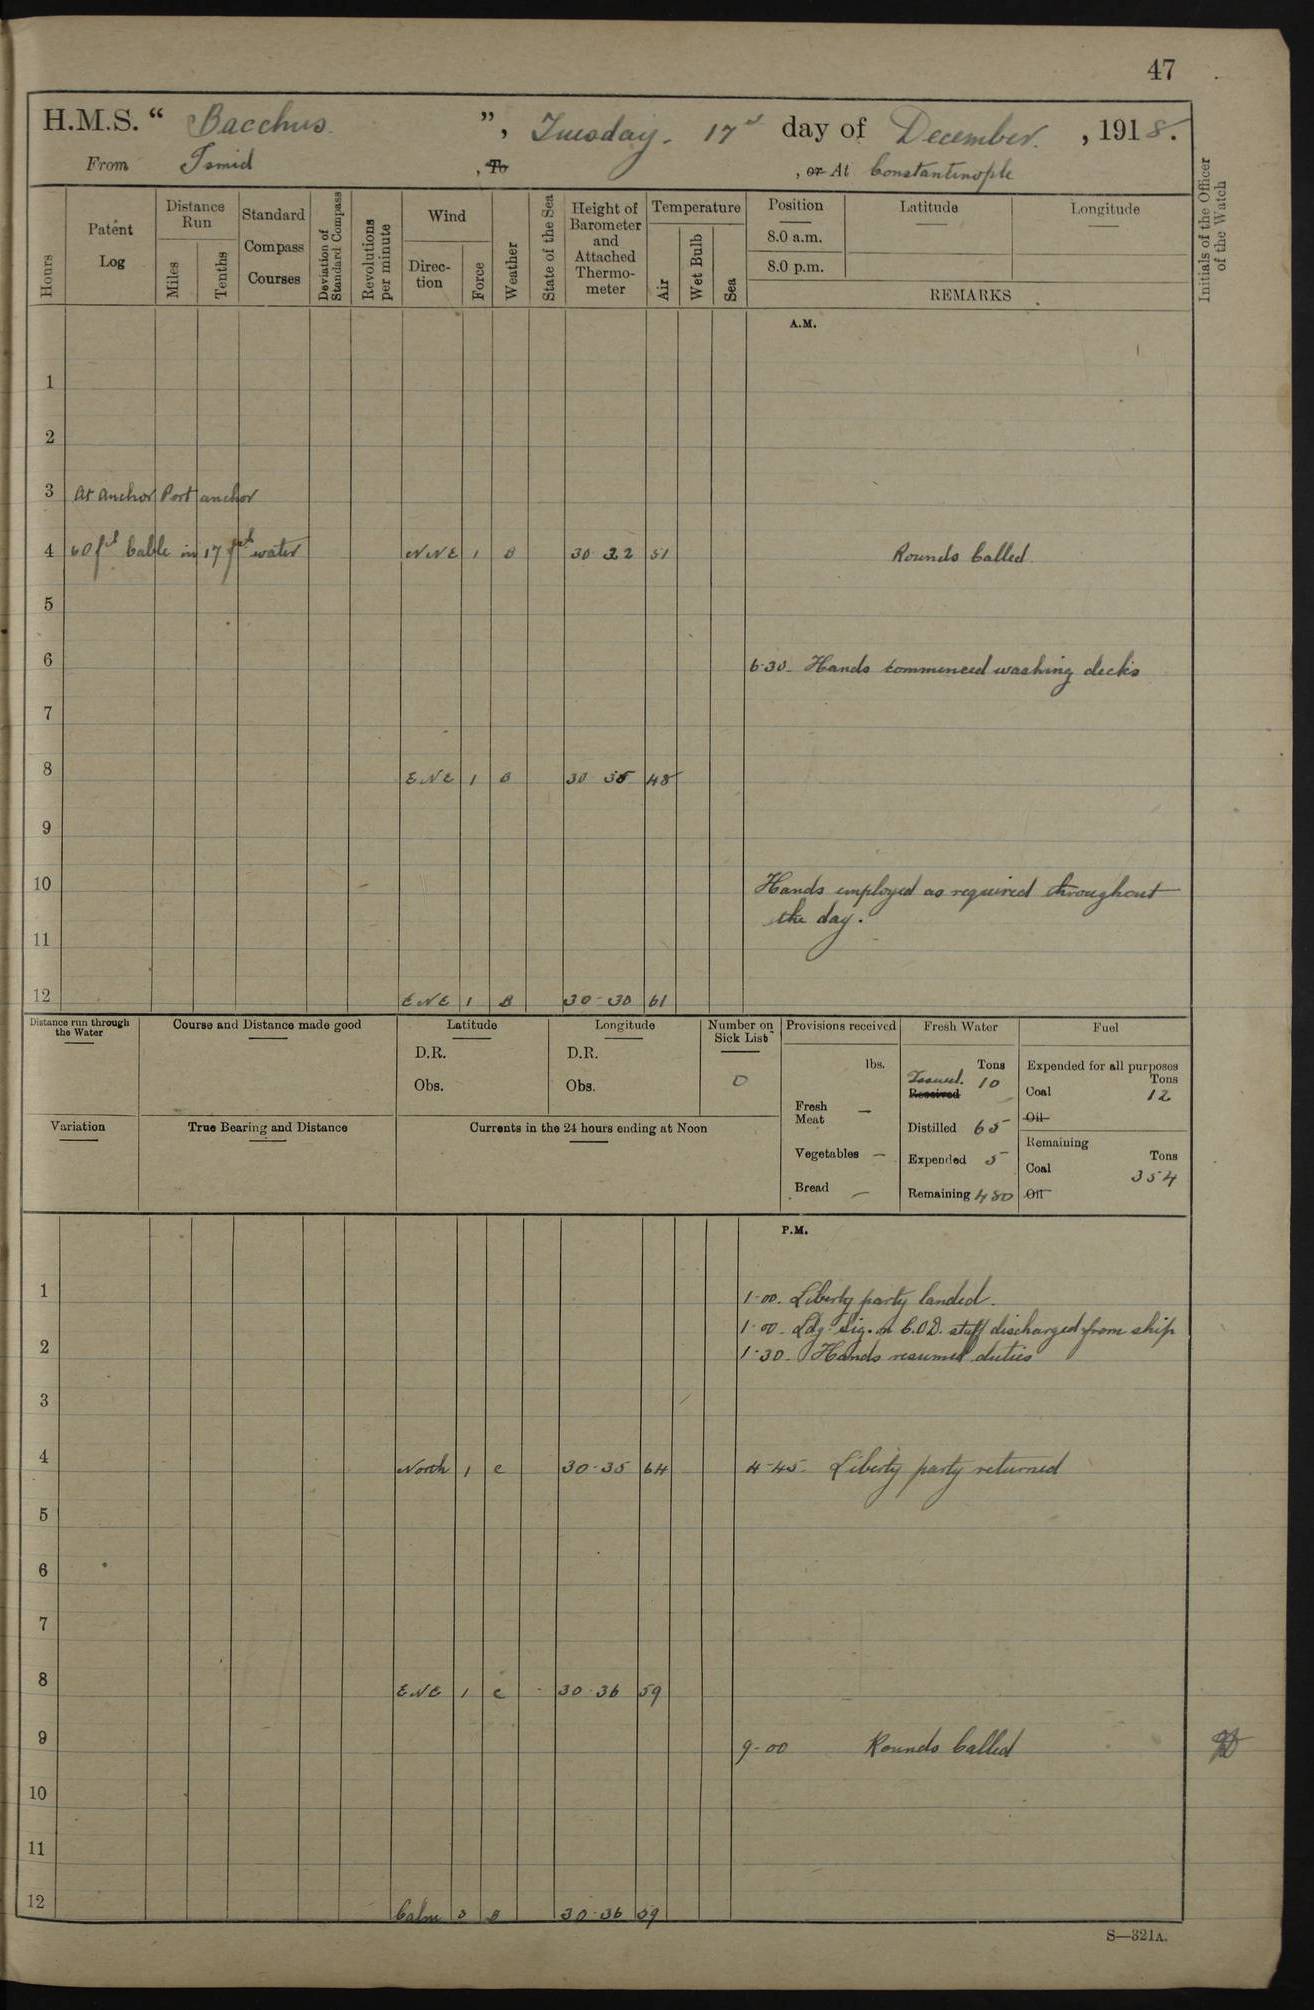 47
H.M.S. “ Bacchus ”, Tuesday. 17th day of December. , 1918.
From Ismid , To , or At Constantinople
Hours
Patent Log
Distance Run
Miles
Tenths
Standard Compass Courses
Deviation of Standard Compass
Revolutions per minute
Wind
Direction
Force
Weather
State of the Sea
Height of Barometer and Attached Thermometer
Temperature
Air
Wet Bulb
Sea
Position
8.0 a.m.
8.0 p.m.
Latitude
Longitude
REMARKS
Initials of the Officer of the Watch
A.M.
1
2
3 At anchor Port anchor
4 60 fth Cable in 17 fth water NNE 1 B 30 32 51 Rounds Called
5
6 6·30 - Hands commenced washing decks
7
8 ENE 1 B 30 35 48
9
10 Hands employed as required throughout
the day.
11
12 ENE 1 B 30 - 30 61
Distance run through the Water
Course and Distance made good
Latitude
D.R.
Obs.
Longitude
D.R.
Obs.
Number on Sick List
0
Provisions received
lbs.
Fresh Meat —
Vegetables —
Bread —
Fresh Water
Tons
Issued. 10
Received
Distilled 65
Expended 5
Remaining 480
Fuel
Expended for all purposes
Tons
Coal 12
Oil
Remaining
Tons
Coal 354
Oil
Variation
True Bearing and Distance
Currents in the 24 hours ending at Noon
P.M.
1 1-00. Liberty party landed.
1-00 - Ldg. Sig. C.O.D. staff discharged from ship
2 1-30 - Hands resumed duties
3
4 North 1 c 30-35 64 4-45 - Liberty party returned
5
6
7
8 ENE 1 c 30-36 59
9 9-00 Rounds Called
10
11
12 Calm 0 B 30-36 59
S—321A.